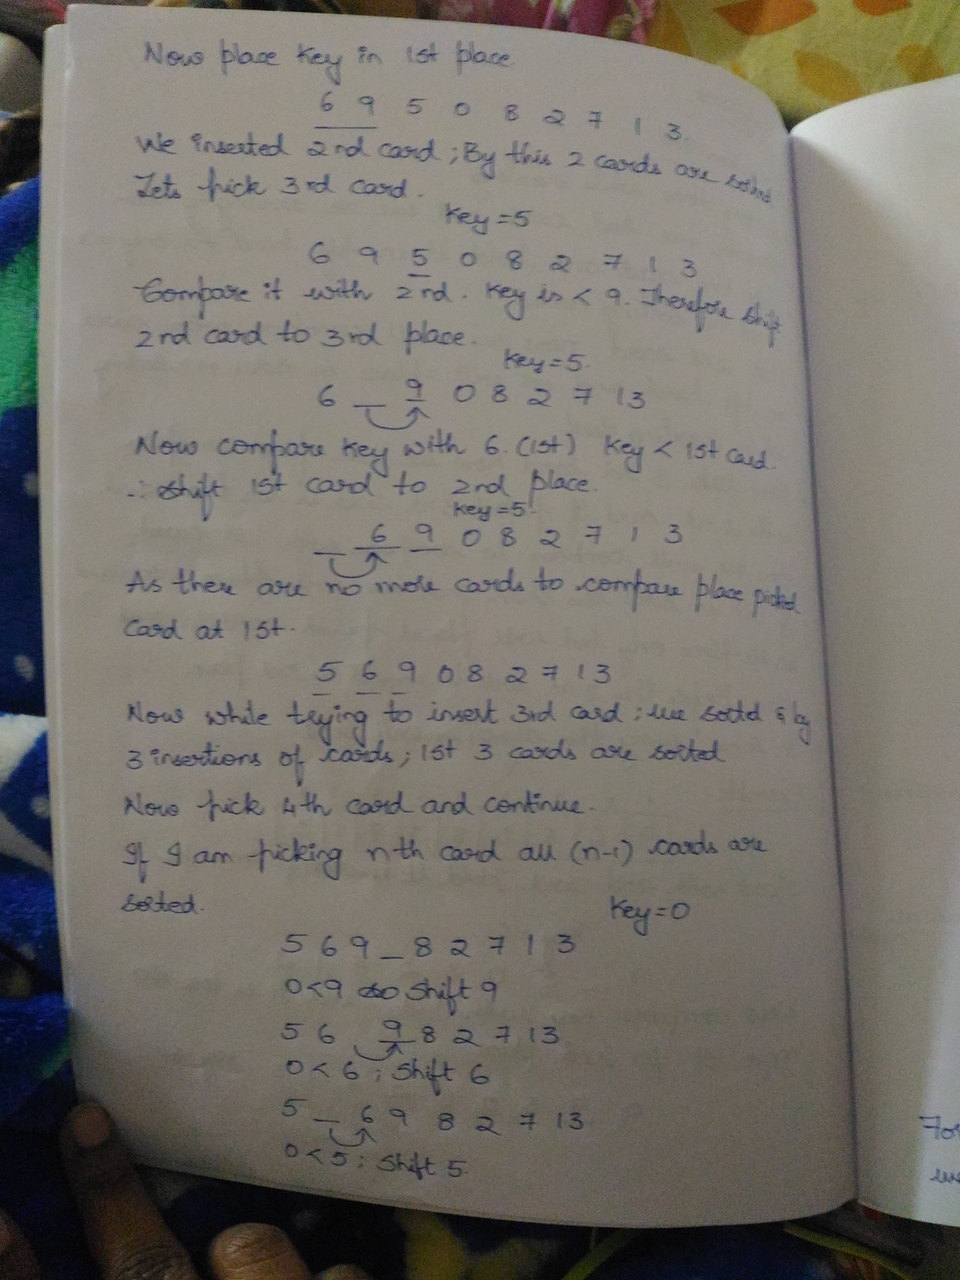 Now place key in 1st place
6 9 5 0 8 2 7 1 3.
We inserted 2nd card ; By this 2 cards are sorted
Lets pick 3rd card.
Key =5
6 9 5 0 8 2 7 1 3
Compare it with 2nd. Key is < 9. Therefore shift
2nd card to 3rd place.
Key = 5.
6 _ 9 0 8 2 7 1 3
Now compare key with 6. (1st) Key < 1st card.
∴ shift 1st card to 2nd place.
Key =5.
_ 6 9 0 8 2 7 1 3
As there are no more cards to compare place picked
card at 1st.
5 6 9 0 8 2 7 1 3
Now while trying to insert 3rd card ; we sorted & by
3 insertions of cards; 1st 3 cards are sorted
Now pick 4th card and continue.
If I am picking nth card all (n-1) cards are
sorted.
Key=0
5 6 9 _ 8 2 7 1 3
0<9 so shift 9
5 6 _ 9 8 2 7 1 3
0 < 6 ; Shift 6
5 _ 6 9 8 2 7 1 3
0 < 5 ; Shift 5
For